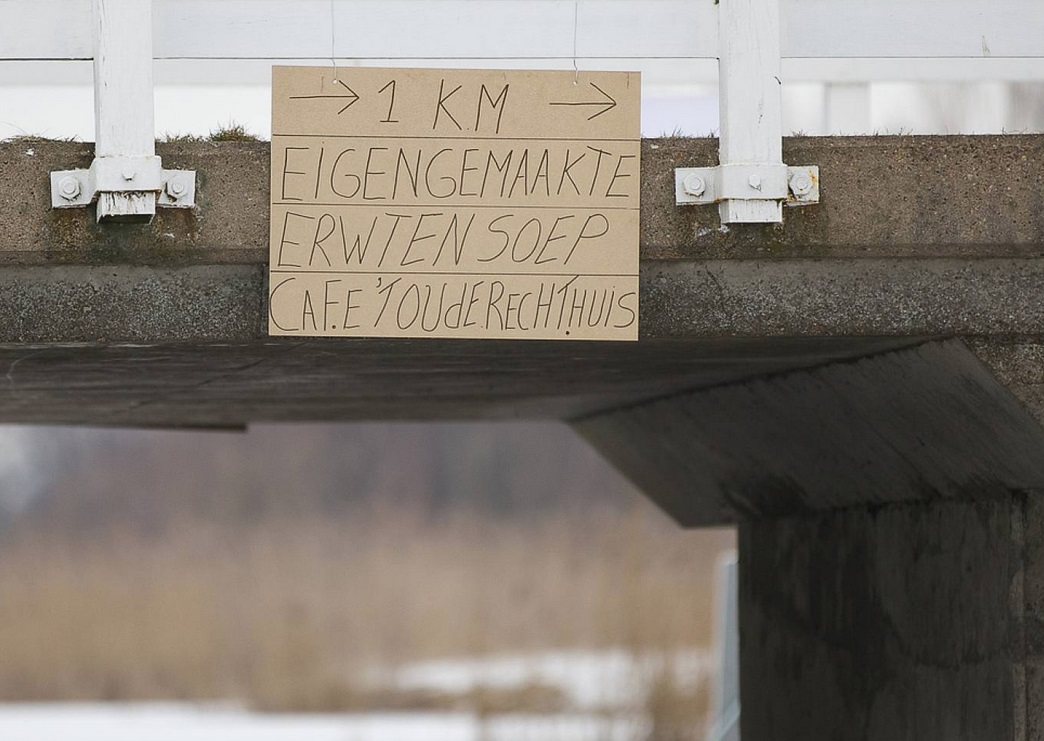 → 1 K.M →
EIGENGEMAAKTE
ERWTEN SOEP
CAF.E 'T OUdE.RECHT.HUIS